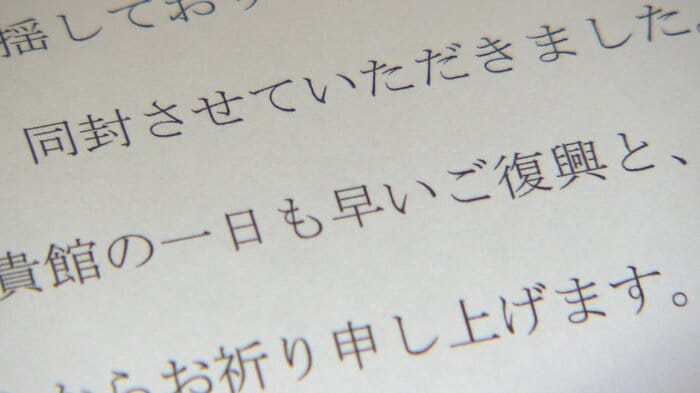 揺しており
同封させていただきました。
貴館の一日も早いご復興と、
からお祈り申し上げます。